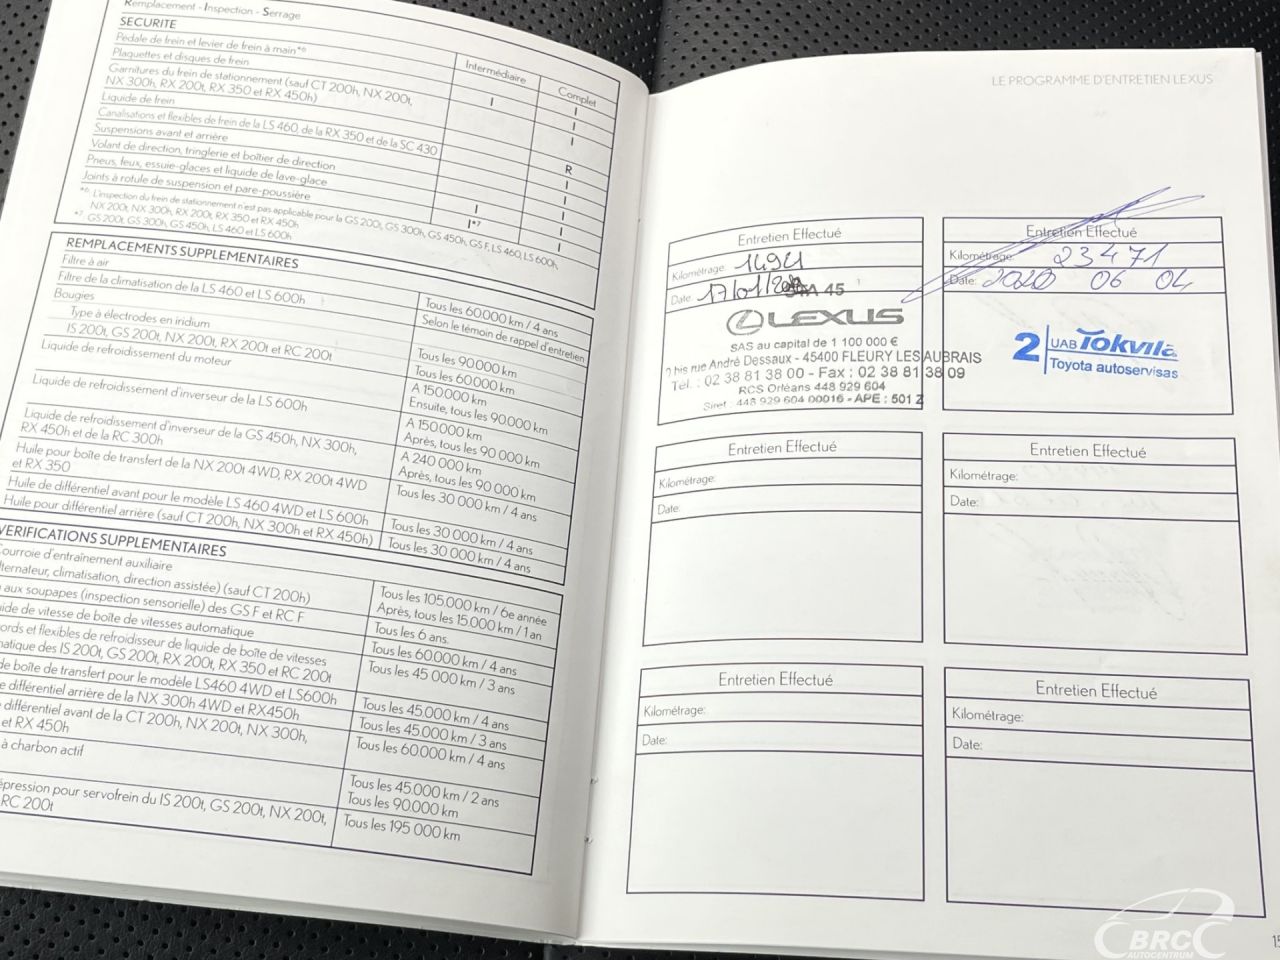 Remplacement - Inspection - Serrage
SECURITE
Intermédiaire
Complet
Pédale de frein et levier de frein à main*6
I
Plaquettes et disques de frein
I
I
Garnitures du frein de stationnement (sauf CT 200h, NX 200t,
NX 300h, RX 200t, RX 350 et RX 450h)
I
Liquide de frein
R
Canalisations et flexibles de frein de la LS 460, de la RX 350 et de la SC 430
I
Suspensions avant et arrière
I
Volant de direction, tringlerie et boîtier de direction
I
Pneus, feux, essuie-glaces et liquide de lave-glace
I
I
Joints à rotule de suspension et pare-poussière
I*7
I
*6 L'inspection du frein de stationnement n'est pas applicable pour la GS 200t, GS 300h, GS 450h, GS F, LS 460, LS 600h,
NX 200t, NX 300h, RX 200t, RX 350 et RX 450h
*7 GS 200t, GS 300h, GS 450h, LS 460 et LS 600h
REMPLACEMENTS SUPPLEMENTAIRES
Filtre à air
Tous les 60.000 km / 4 ans
Filtre de la climatisation de la LS 460 et LS 600h
Selon le témoin de rappel d'entretien
Bougies
Type à électrodes en iridium
Tous les 90.000 km
IS 200t, GS 200t, NX 200t, RX 200t et RC 200t
Tous les 60.000 km
Liquide de refroidissement du moteur
A 150.000 km
Ensuite, tous les 90.000 km
Liquide de refroidissement d'inverseur de la LS 600h
A 150.000 km
Après, tous les 90 000 km
Liquide de refroidissement d'inverseur de la GS 450h, NX 300h,
RX 450h et de la RC 300h
A 240 000 km
Après, tous les 90 000 km
Huile pour boîte de transfert de la NX 200t 4WD, RX 200t 4WD
et RX 350
Tous les 30 000 km / 4 ans
Huile de différentiel avant pour le modèle LS 460 4WD et LS 600h
Tous les 30 000 km / 4 ans
Huile pour différentiel arrière (sauf CT 200h, NX 300h et RX 450h)
Tous les 30 000 km / 4 ans
VERIFICATIONS SUPPLEMENTAIRES
Courroie d'entraînement auxiliaire
lternateur, climatisation, direction assistée) (sauf CT 200h)
Tous les 105.000 km / 6e année
Après, tous les 15.000 km / 1 an
aux soupapes (inspection sensorielle) des GS F et RC F
Tous les 6 ans.
ide de vitesse de boîte de vitesses automatique
Tous les 60.000 km / 4 ans
ords et flexibles de refroidisseur de liquide de boîte de vitesses
matique des IS 200t, GS 200t, RX 200t, RX 350 et RC 200t
Tous les 45 000 km / 3 ans
de boîte de transfert pour le modèle LS460 4WD et LS600h
Tous les 45.000 km / 4 ans
e différentiel arrière de la NX 300h 4WD et RX450h
Tous les 45.000 km / 3 ans
différentiel avant de la CT 200h, NX 200t, NX 300h,
et RX 450h
Tous les 60.000 km / 4 ans
à charbon actif
Tous les 45.000 km / 2 ans
Tous les 90.000 km
épression pour servofrein du IS 200t, GS 200t, NX 200t,
RC 200t
Tous les 195 000 km
LE PROGRAMME D'ENTRETIEN LEXUS
Entretien Effectué
Kilométrage:
Date: 17/01/
STA 45
LEXUS
SAS au capital de 1 100 000 €
bis rue André Dessaux - 45400 FLEURY LES AUBRAIS
Tél. : 02 38 81 38 00 - Fax : 02 38 81 38 09
RCS Orléans 448 929 604
Siret : 448 929 604 00016 - APE : 501 Z
Entretien Effectué
Kilométrage: 23471
Date: 2020 06 04
2 UAB Tokvila
Toyota autoservisas
Entretien Effectué
Kilométrage:
Date:
Entretien Effectué
Kilométrage:
Date:
Entretien Effectué
Kilométrage:
Date:
Entretien Effectué
Kilométrage:
Date:
15
BRC
AUTOCENTRUM